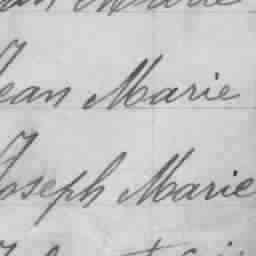 Marie
Jean Marie
Joseph Marie